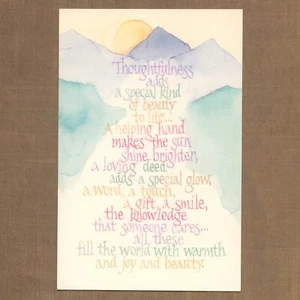 Thoughtfulness
adds
a special kind
of beauty
to life...
A helping hand
makes the sun
shine brighter,
a loving deed
adds a special glow,
a word, a touch,
a gift, a smile,
the knowledge
that someone cares...
all these
fill the world with warmth
and joy and beauty.